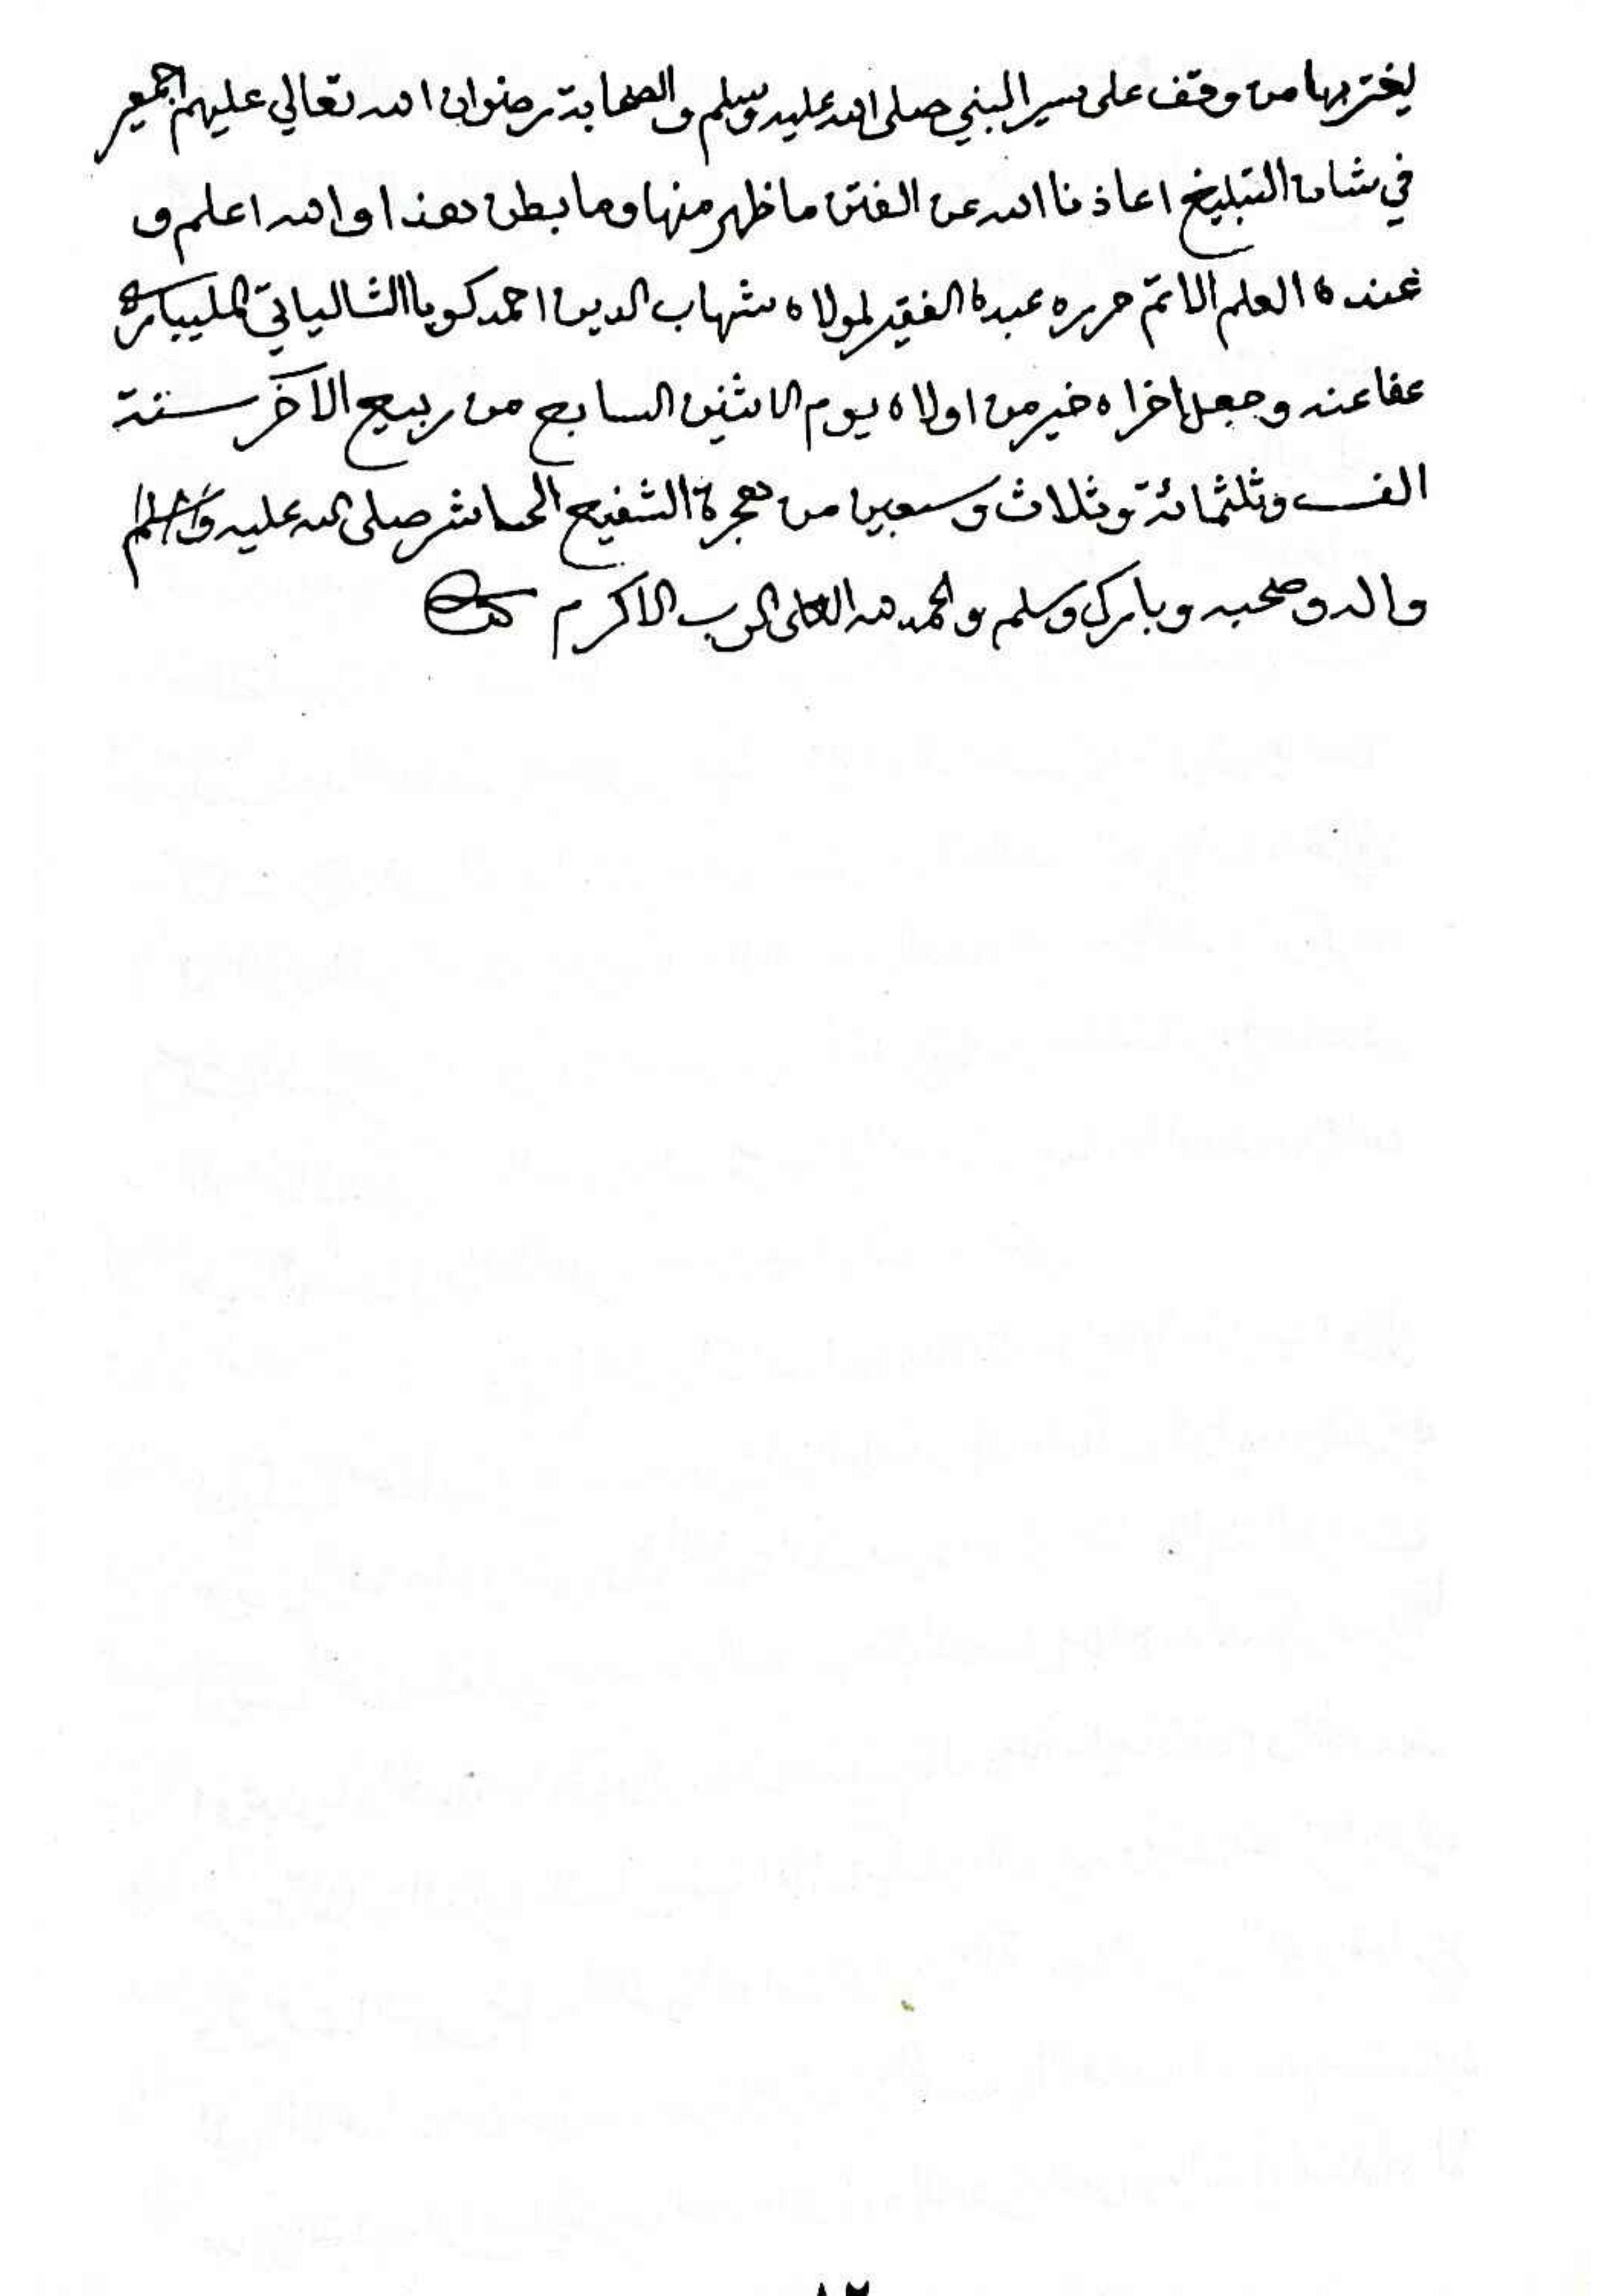 يغتر بها من وقف على سير النبي صلى الله عليه وسلم والصحابة رضوان الله تعالي عليهم اجمعين
في شان التبليغ اعاذنا الله عن الفتن ما ظهر منها وما بطن هذا والله اعلم و
عنده العلم الاتم حرره عبده الفقير لمولاه شهاب الدين احمد كويا الشالياتي المليباري
عفا عنه وجعل اخراه خير من اولاه يوم الاثنين السابع من ربيع الآخر سنة
الف وثلثمائة وثلاث وسبعين من هجرة الشفيع الحاشر صلى الله عليه وسلم
واله وصحبه وبارك وسلم والحمد لله العلى الرب الاكرم
٨٢